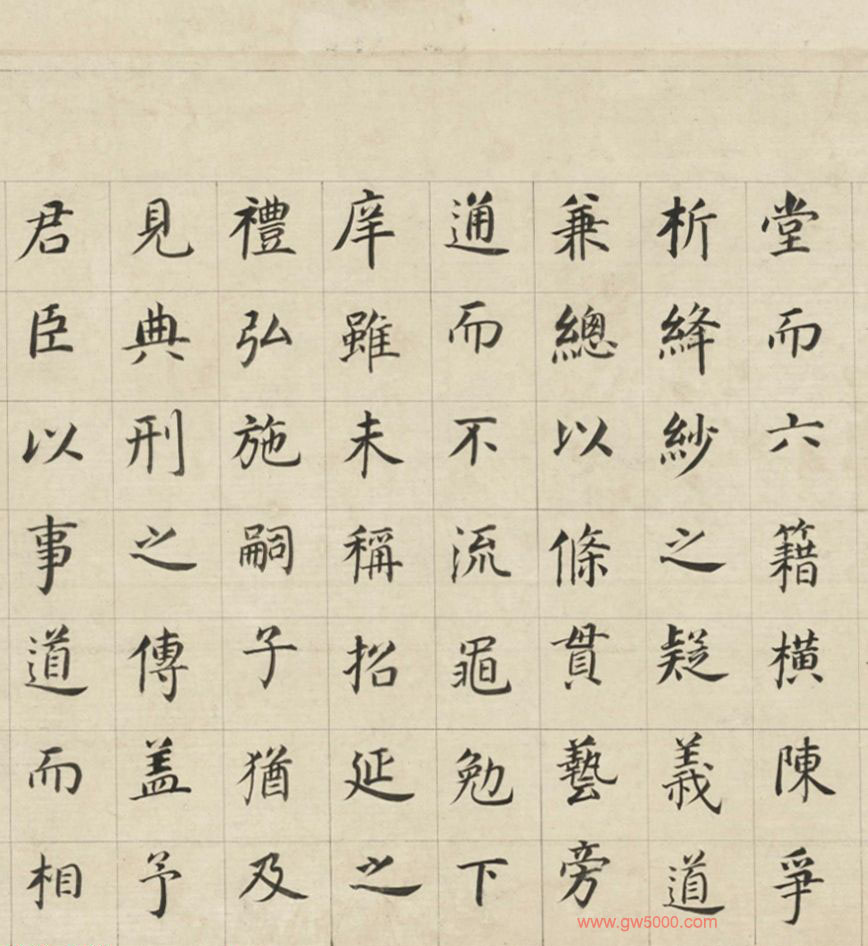 堂而六籍橫陳爭
析絳紗之疑義道
兼總以條貫藝旁
通而不流黽勉下
庠雖未稱招延之
禮弘施嗣子猶及
見典刑之傳盖予
君臣以事道而相
www.gw5000.com